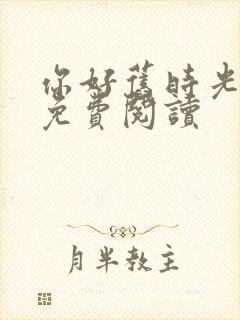 你好舊時光
免費閱讀
月半教主